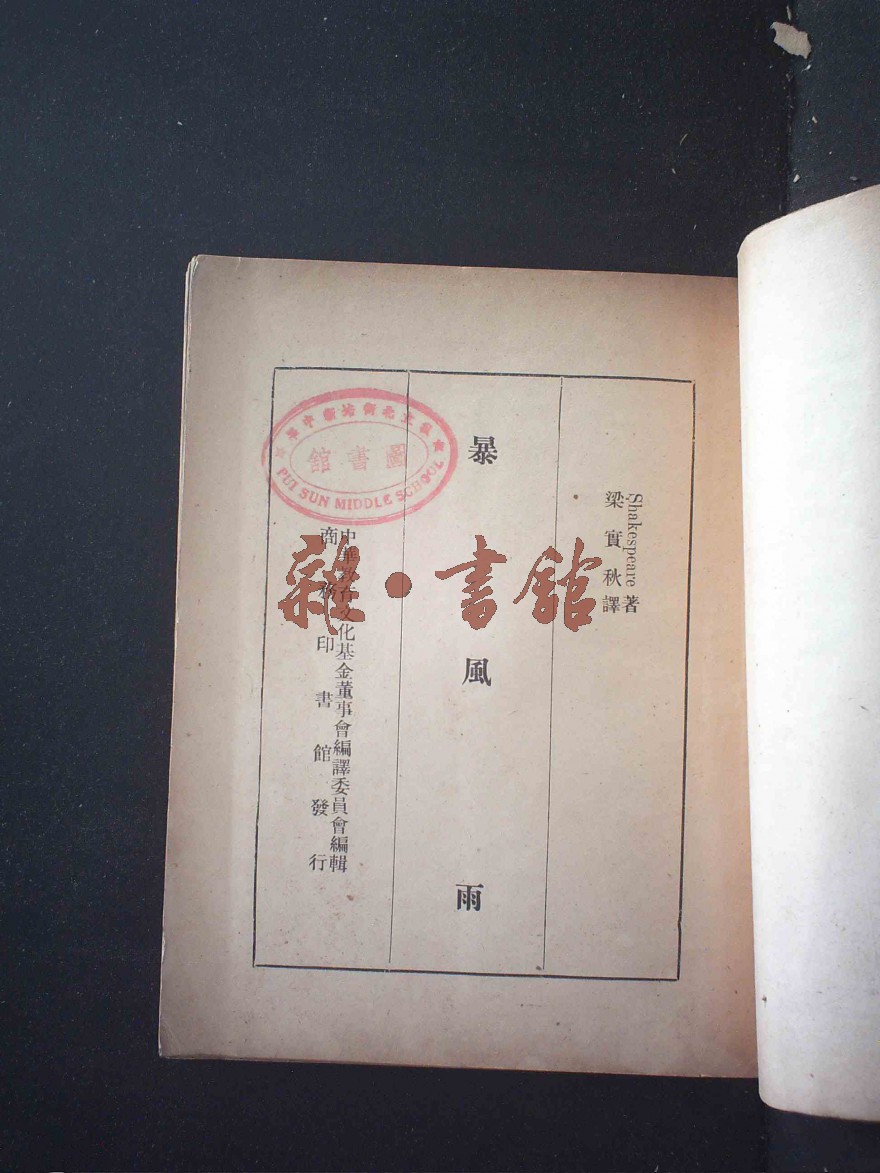 Shakespeare著
梁實秋譯
暴風雨
中華教育文化基金董事會編譯委員會編輯
商務印書館發行
圖書館
PUI SUN MIDDLE SCHOOL
雜·書館